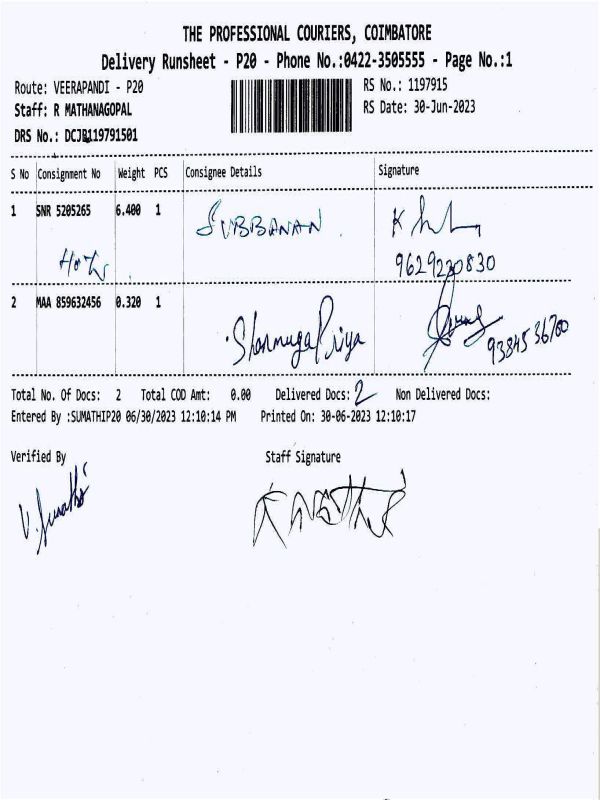 THE PROFESSIONAL COURIERS, COIMBATORE
Delivery Runsheet - P20 - Phone No.:0422-3505555 - Page No.:1
Route: VEERAPANDI - P20 RS No.: 1197915
Staff: R MATHANAGOPAL RS Date: 30-Jun-2023
DRS No.: DCJB119791501
S No Consignment No Weight PCS Consignee Details Signature
1 SNR 5205265 6.400 1 SUBBANAN
9629220830
2 MAA 859632456 0.320 1 ShanmugaPriya 9384536700
Total No. Of Docs: 2 Total COD Amt: 0.00 Delivered Docs: 2 Non Delivered Docs:
Entered By :SUMATHIP20 06/30/2023 12:10:14 PM Printed On: 30-06-2023 12:10:17
Verified By Staff Signature
V. Sumathi